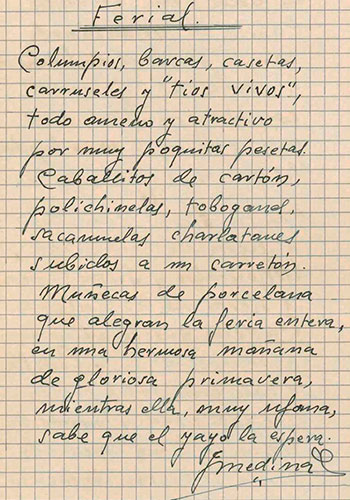 Ferial.
Columpios, barcas, casetas,
carruseles y "tios vivos",
todo ameno y atractivo
por muy poquitas pesetas.
Caballitos de cartón,
polichinelas, tobogand,
sacamuelas charlatanes
subidos a un carretón.
Muñecas de porcelana
que alegran la feria entera,
en una hermosa mañana
de gloriosa primavera,
mientras ella, muy ufana,
sabe que el yayo la espera.
Jmedina